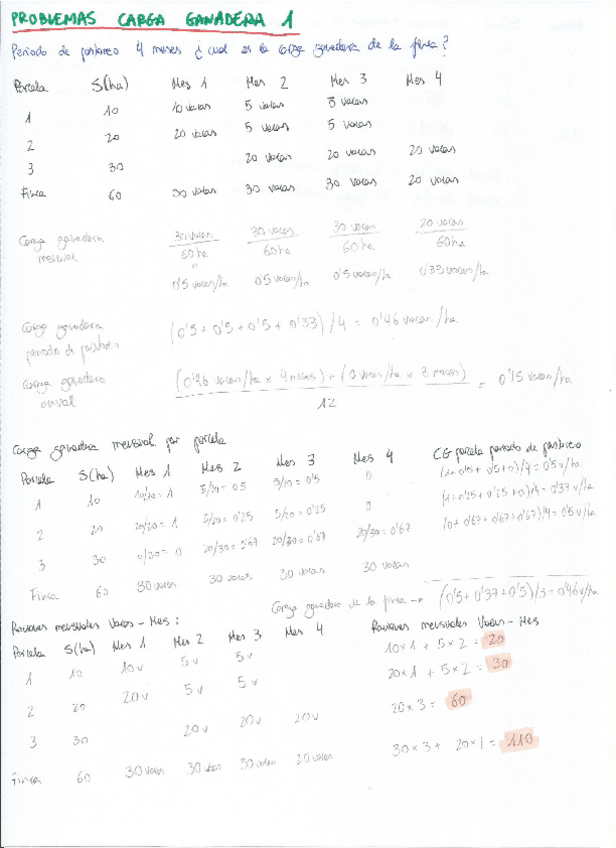 PROBLEMAS CARGA GANADERA 1
Periodo de pastoreo 4 meses ¿cual es la carga ganadera de la finca?
Parcela S(ha) Mes 1 Mes 2 Mes 3 Mes 4
1 10 10 vacas 5 vacas 5 vacas
2 20 20 vacas 5 vacas 5 vacas
3 30 20 vacas 20 vacas 20 vacas
Finca 60 30 vacas 30 vacas 30 vacas 20 vacas
Carga ganadera mensual 30 vacas/60 ha 30 vacas/60 ha 30 vacas/60 ha 20 vacas/60 ha
0'5 vacas/ha 0'5 vacas/ha 0'5 vacas/ha 0'33 vacas/ha
Carga ganadera periodo de pastoreo (0'5 + 0'5 + 0'5 + 0'33) /4 = 0'46 vacas/ha
Carga ganadera anual (0'46 vacas/ha x 4 meses) + (0 vacas/ha x 8 meses) / 12 = 0'15 vacas/ha
Carga ganadera mensual por parcela
Parcela S(ha) Mes 1 Mes 2 Mes 3 Mes 4 CG parcela periodo de pastoreo
1 10 10/10 = 1 5/10 = 0'5 5/10 = 0'5 0 (1+0'5+0'5+0)/4 = 0'5 v/ha
2 20 20/20 = 1 5/20 = 0'25 5/20 = 0'25 0 (1+0'25+0'25+0)/4 = 0'37 v/ha
3 30 0/30 = 0 20/30 = 0'67 20/30 = 0'67 20/30 = 0'67 (0+0'67+0'67+0'67)/4 = 0'5 v/ha
Finca 60 30 vacas 30 vacas 30 vacas 30 vacas
Carga ganadera de la finca → (0'5+0'37+0'5)/3 = 0'46 v/ha
Raciones mensuales Vacas - Mes: Raciones mensuales Vacas - Mes
Parcela S(ha) Mes 1 Mes 2 Mes 3 Mes 4
1 10 10 v 5 v 5 v 10 x 1 + 5 x 2 = 20
2 20 20 v 5 v 5 v 20 x 1 + 5 x 2 = 30
3 30 20 v 20 v 20 v 20 x 3 = 60
Finca 60 30 vacas 30 vacas 30 vacas 20 vacas 30 x 3 + 20 x 1 = 110